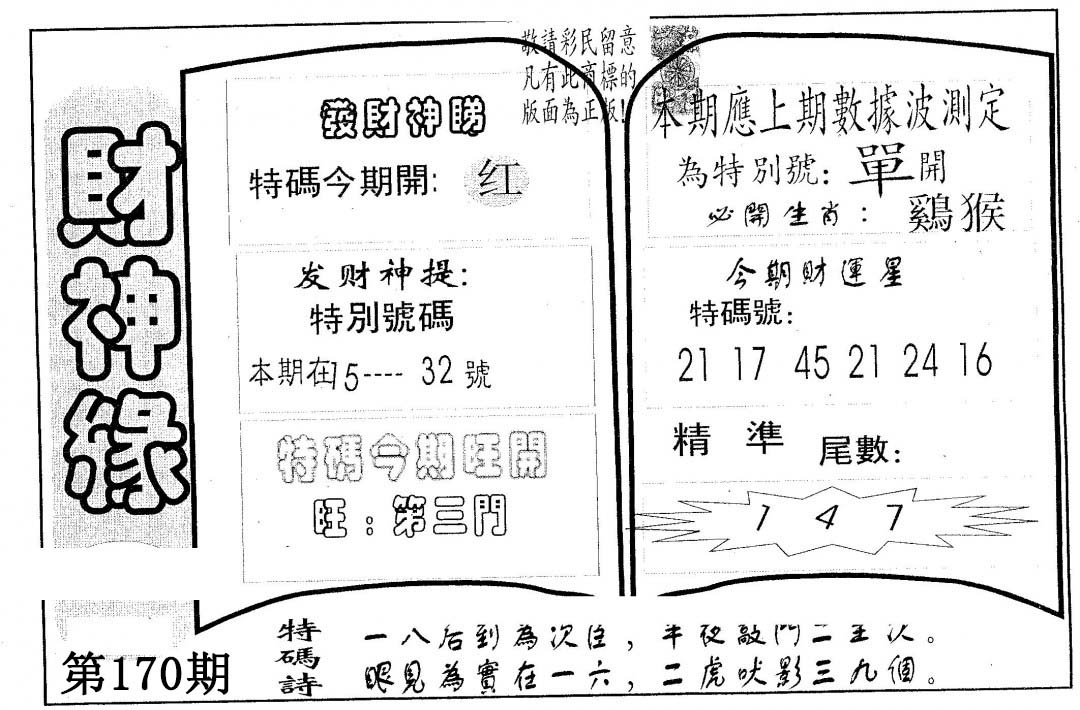 財神緣
第170期
敬請彩民留意
凡有此商標的
版面為正版!
發財神睇
特碼今期開: 红
发财神提:
特別號碼
本期在15---- 32號
特碼今期旺開
旺:第三門
本期應上期數據波測定
為特別號:單開
必開生肖:鷄猴
今期財運星
特碼號:
21 17 45 21 24 16
精準 尾數:
1 4 7
特碼詩
一八后到為次住,半夜敲門二至次。
眼見為實在一六,二虎吠影三九個。